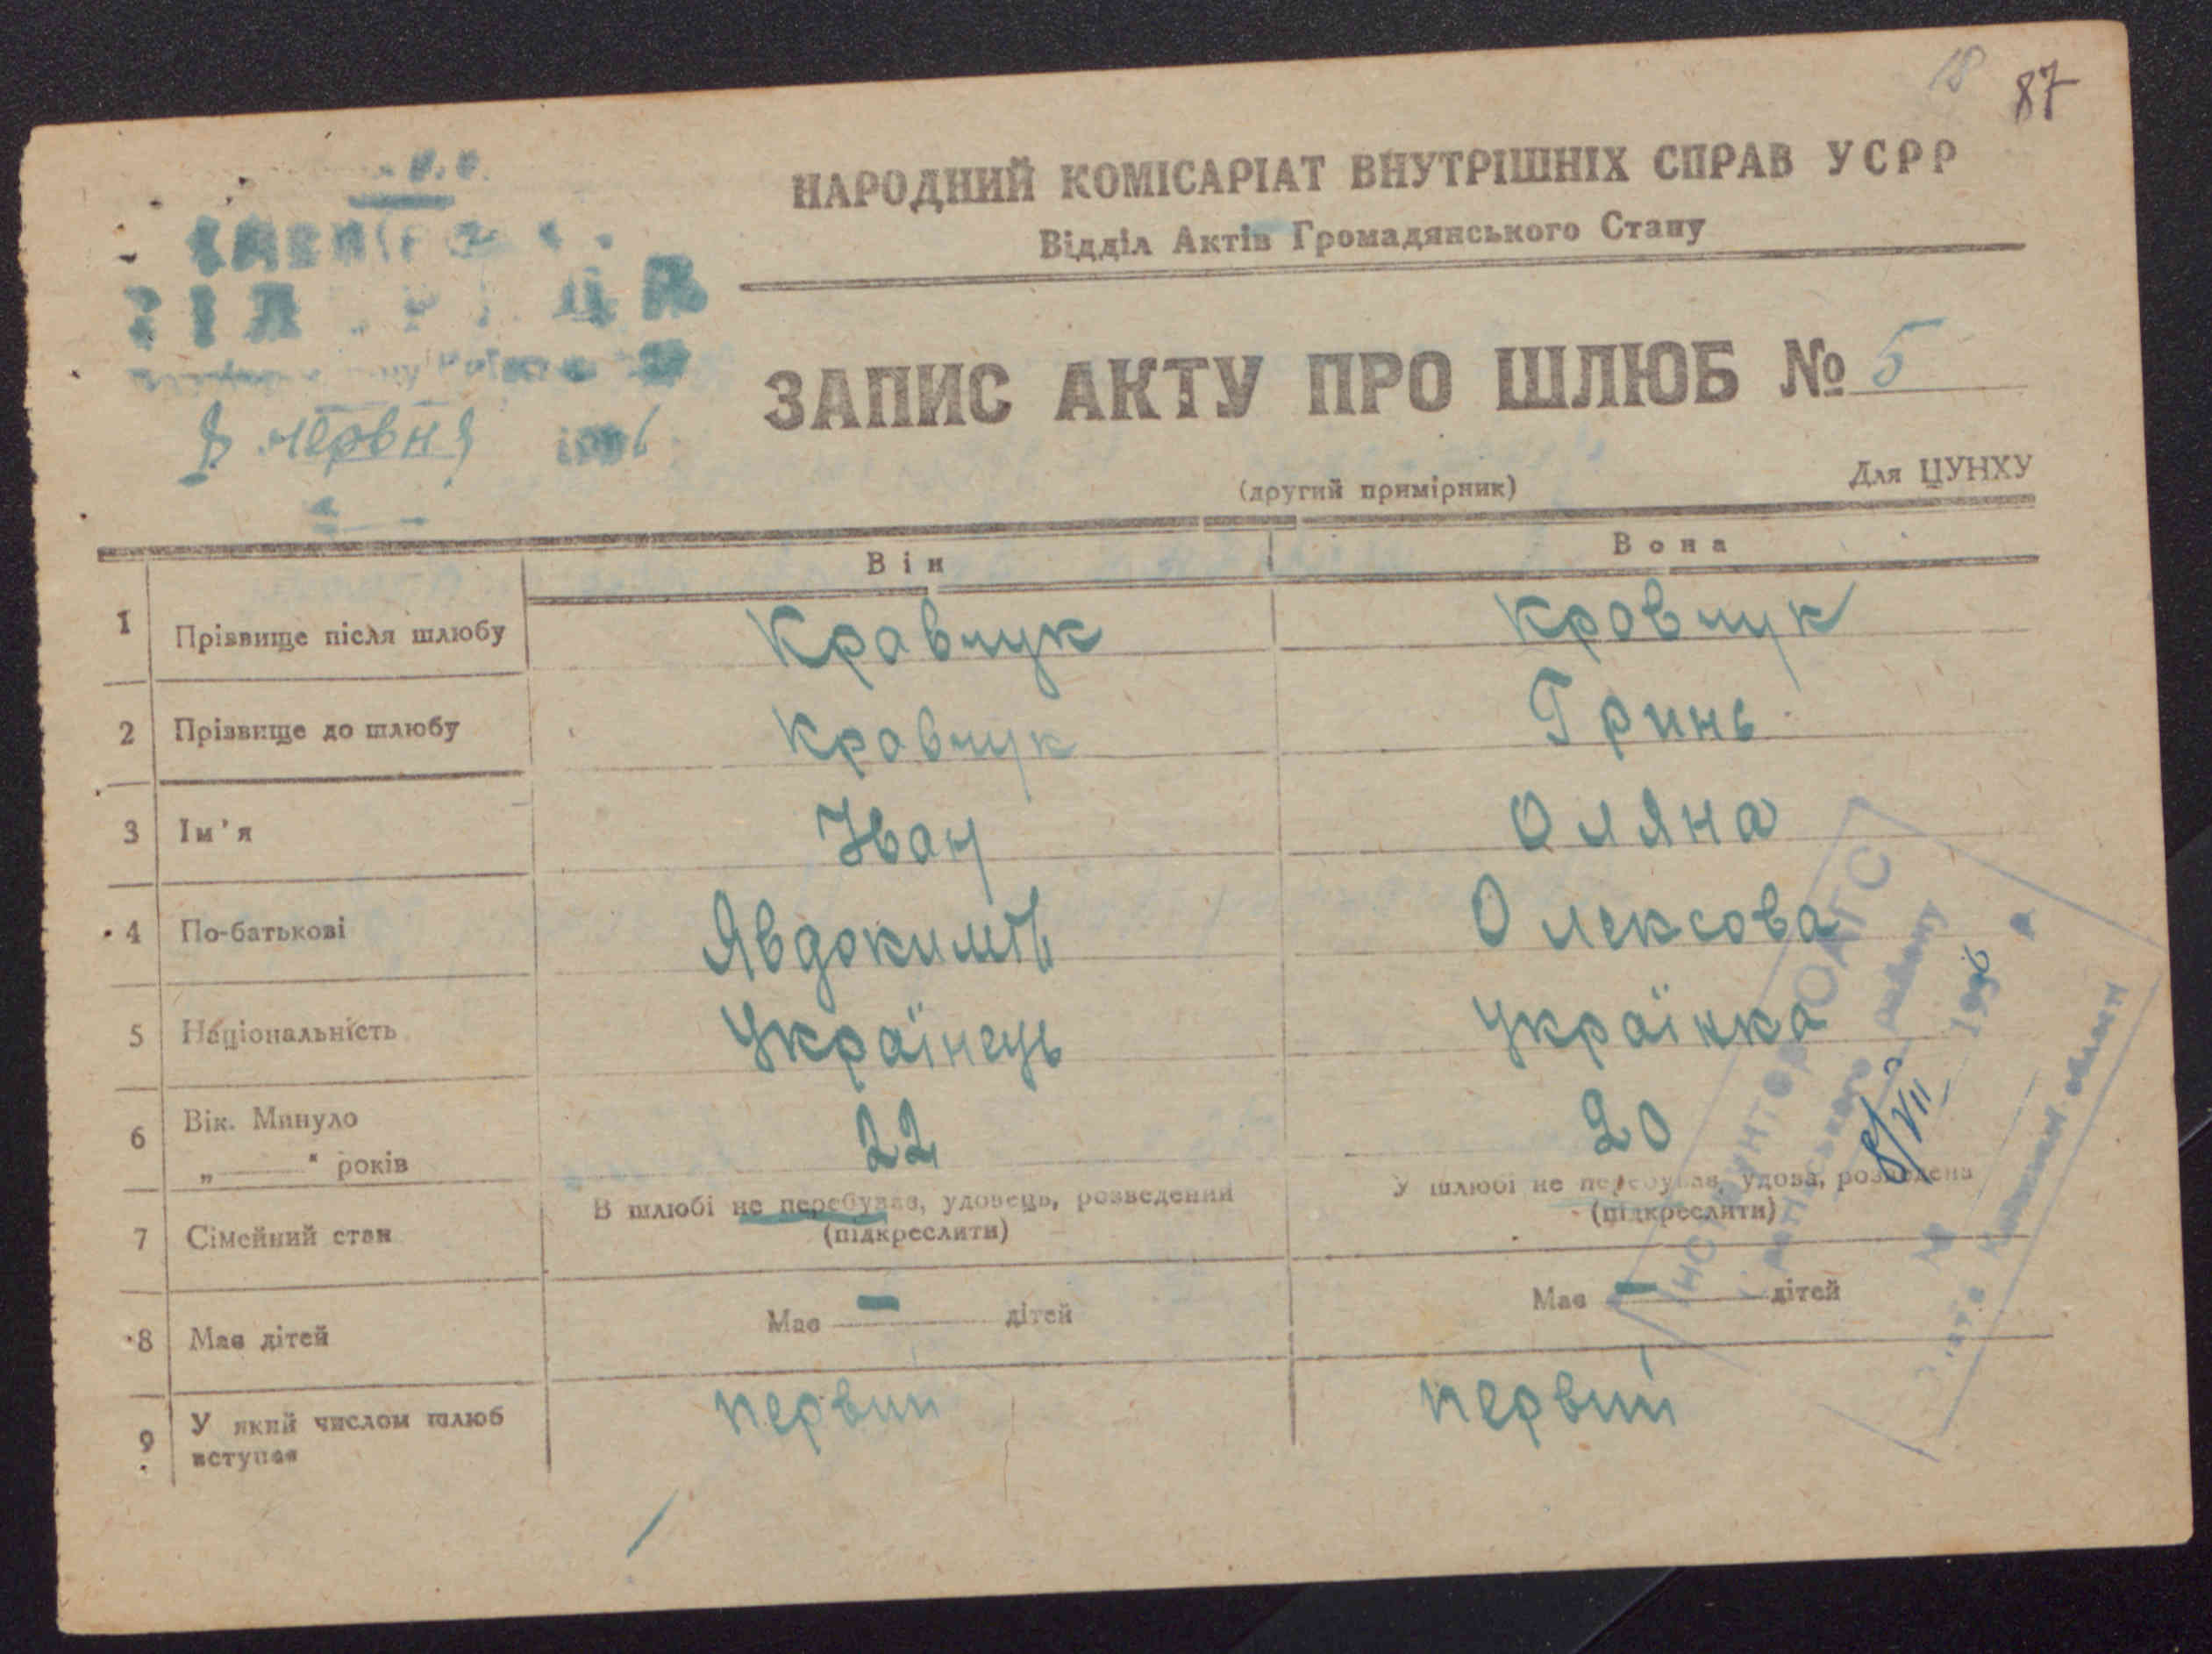 18 87
НАРОДНИЙ КОМІСАРІАТ ВНУТРІШНІХ СПРАВ УСРР
Відділ Актів Громадянського Стану
ЗАПИС АКТУ ПРО ШЛЮБ № 5
8 червня
(другий примірник) Для ЦУНХУ
Він Вона
1 Прізвище після шлюбу Кравчук Кровчук
2 Прізвище до шлюбу Кровчук Гринь
3 Ім'я Іван Оляна
4 По-батькові Явдокимів Олексова
5 Національність Українець Українка
6 Вік. Минуло 22 20
„ “ років
7 Сімейний стан В шлюбі не перебував, удовець, розведений У шлюбі не перебував, удова, розведена
(підкреслити) (підкреслити)
8 Має дітей Має – дітей Має – дітей
9 У який числом шлюб первий первий
вступає
ІНСПЕКТОР ОАГС
району
8/VII 1936 р
№